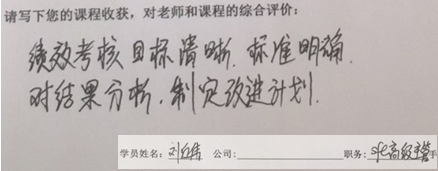 请写下您的课程收获，对老师和课程的综合评价：
绩效考核目标清晰，标准明确，
对结果分析，制定改进计划.
学员姓名：刘 公司： 职务：高级主管 手